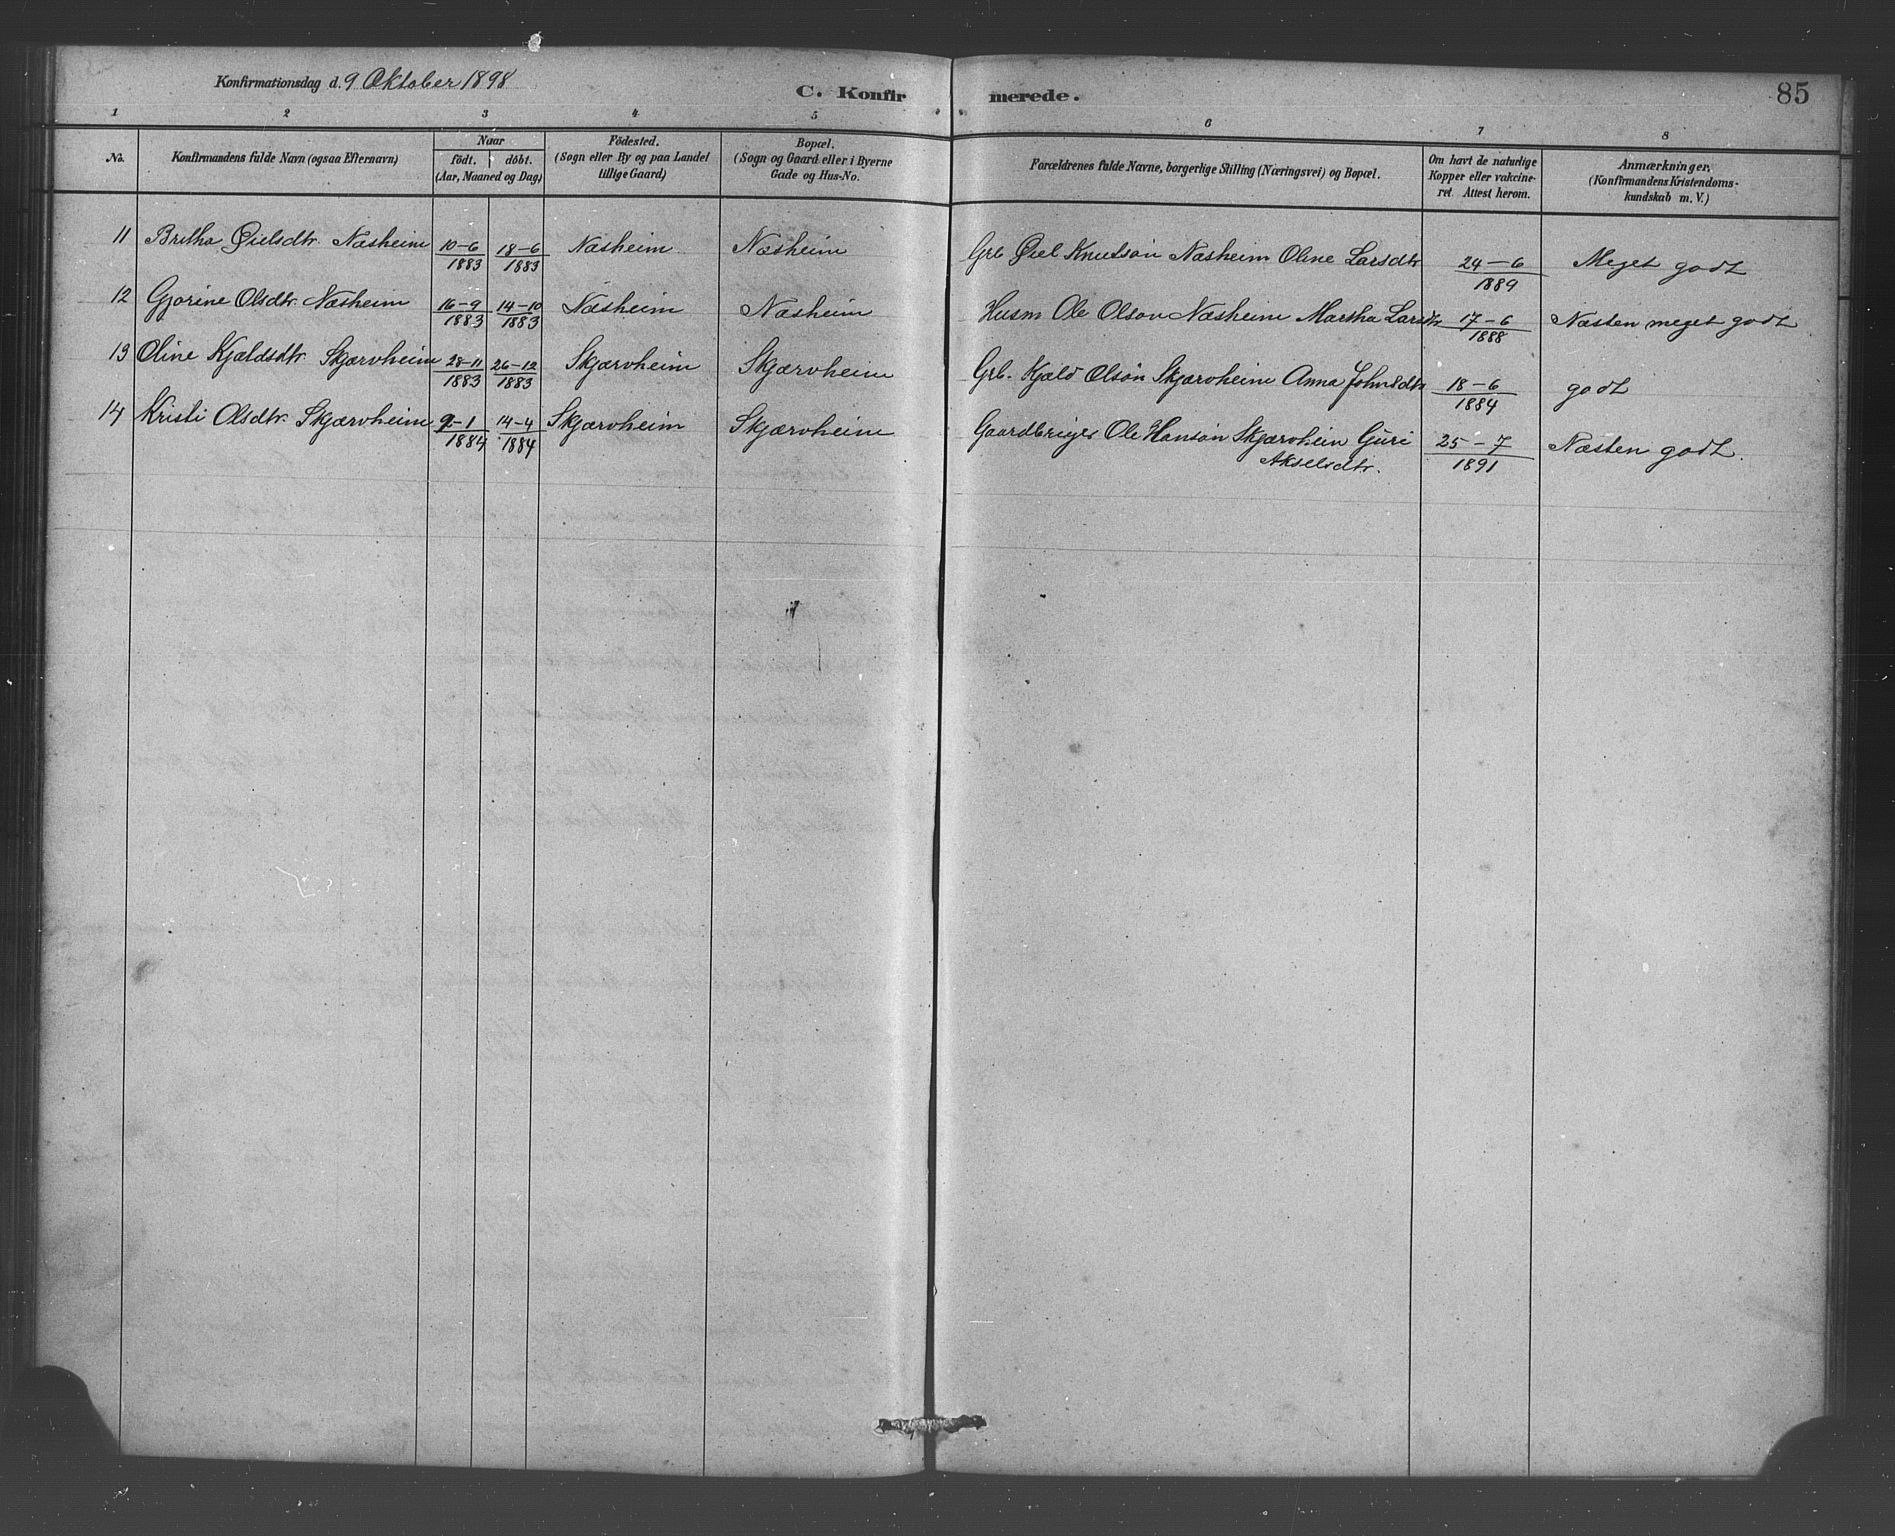 Konfirmationsdag d. 9 Oktober 1898
C. Konfirmerede.
85
1 2 3 4 5 6 7 8
No. Konfirmandens fulde Navn (ogsaa Efternavn) Naar födt. döbt. (Aar, Maaned og Dag) Födested. (Sogn eller By og paa Landet tillige Gaard) Bopæl. (Sogn og Gaard eller i Byerne Gade og Hus-No. Forældrenes fulde Navne, borgerlige Stilling (Næringsvei) og Bopæl. Om havt de naturlige Kopper eller vakcineret. Attest herom. Anmærkninger. (Konfirmandens Kristendomskundskab m. V.)
11 Britha Øielsdtr. Næsheim 10-6 1883 18-6 1883 Næsheim Næsheim Grb Øiel Knutson Næsheim Oline Larsdtr 24-6 1889 Meget godt
12 Gjorine Olsdtr. Næsheim 16-9 1883 14-10 1883 Næsheim Næsheim Husm Ole Olson Næsheim Martha Larsdtr 17-6 1888 Næsten meget godt
13 Oline Kjældsdtr. Skjærvheim 28-11 1883 26-12 1883 Skjærvheim Skjærvheim Grb. Kjæld Olson Skjærvheim Anna Johnsdtr 18-6 1884 godt
14 Kristi Olsdtr. Skjærvheim 9-1 1884 14-4 1884 Skjærvheim Skjærvheim Gaardbruger Ole Hanson Skjærvheim Guri 25-7 1891 Næsten godt.
Akselsdtr.